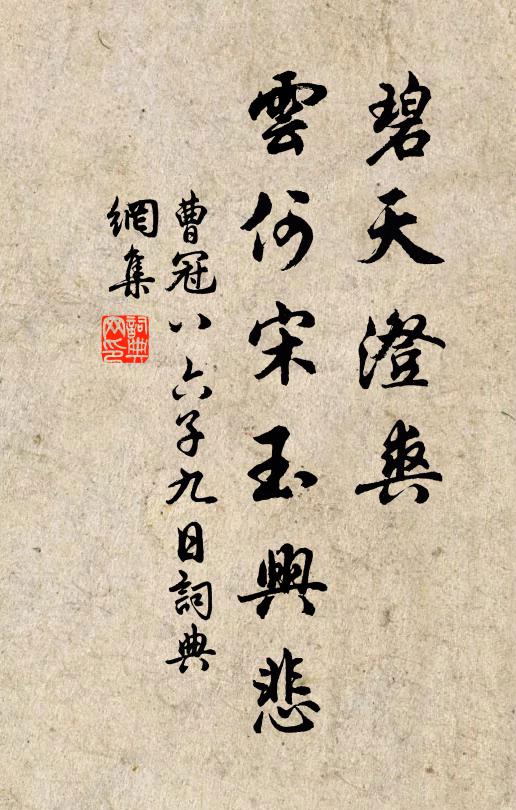 碧天澄爽
雲何宋玉興悲
曹冠八六子九日詞典
網集
詞典网印